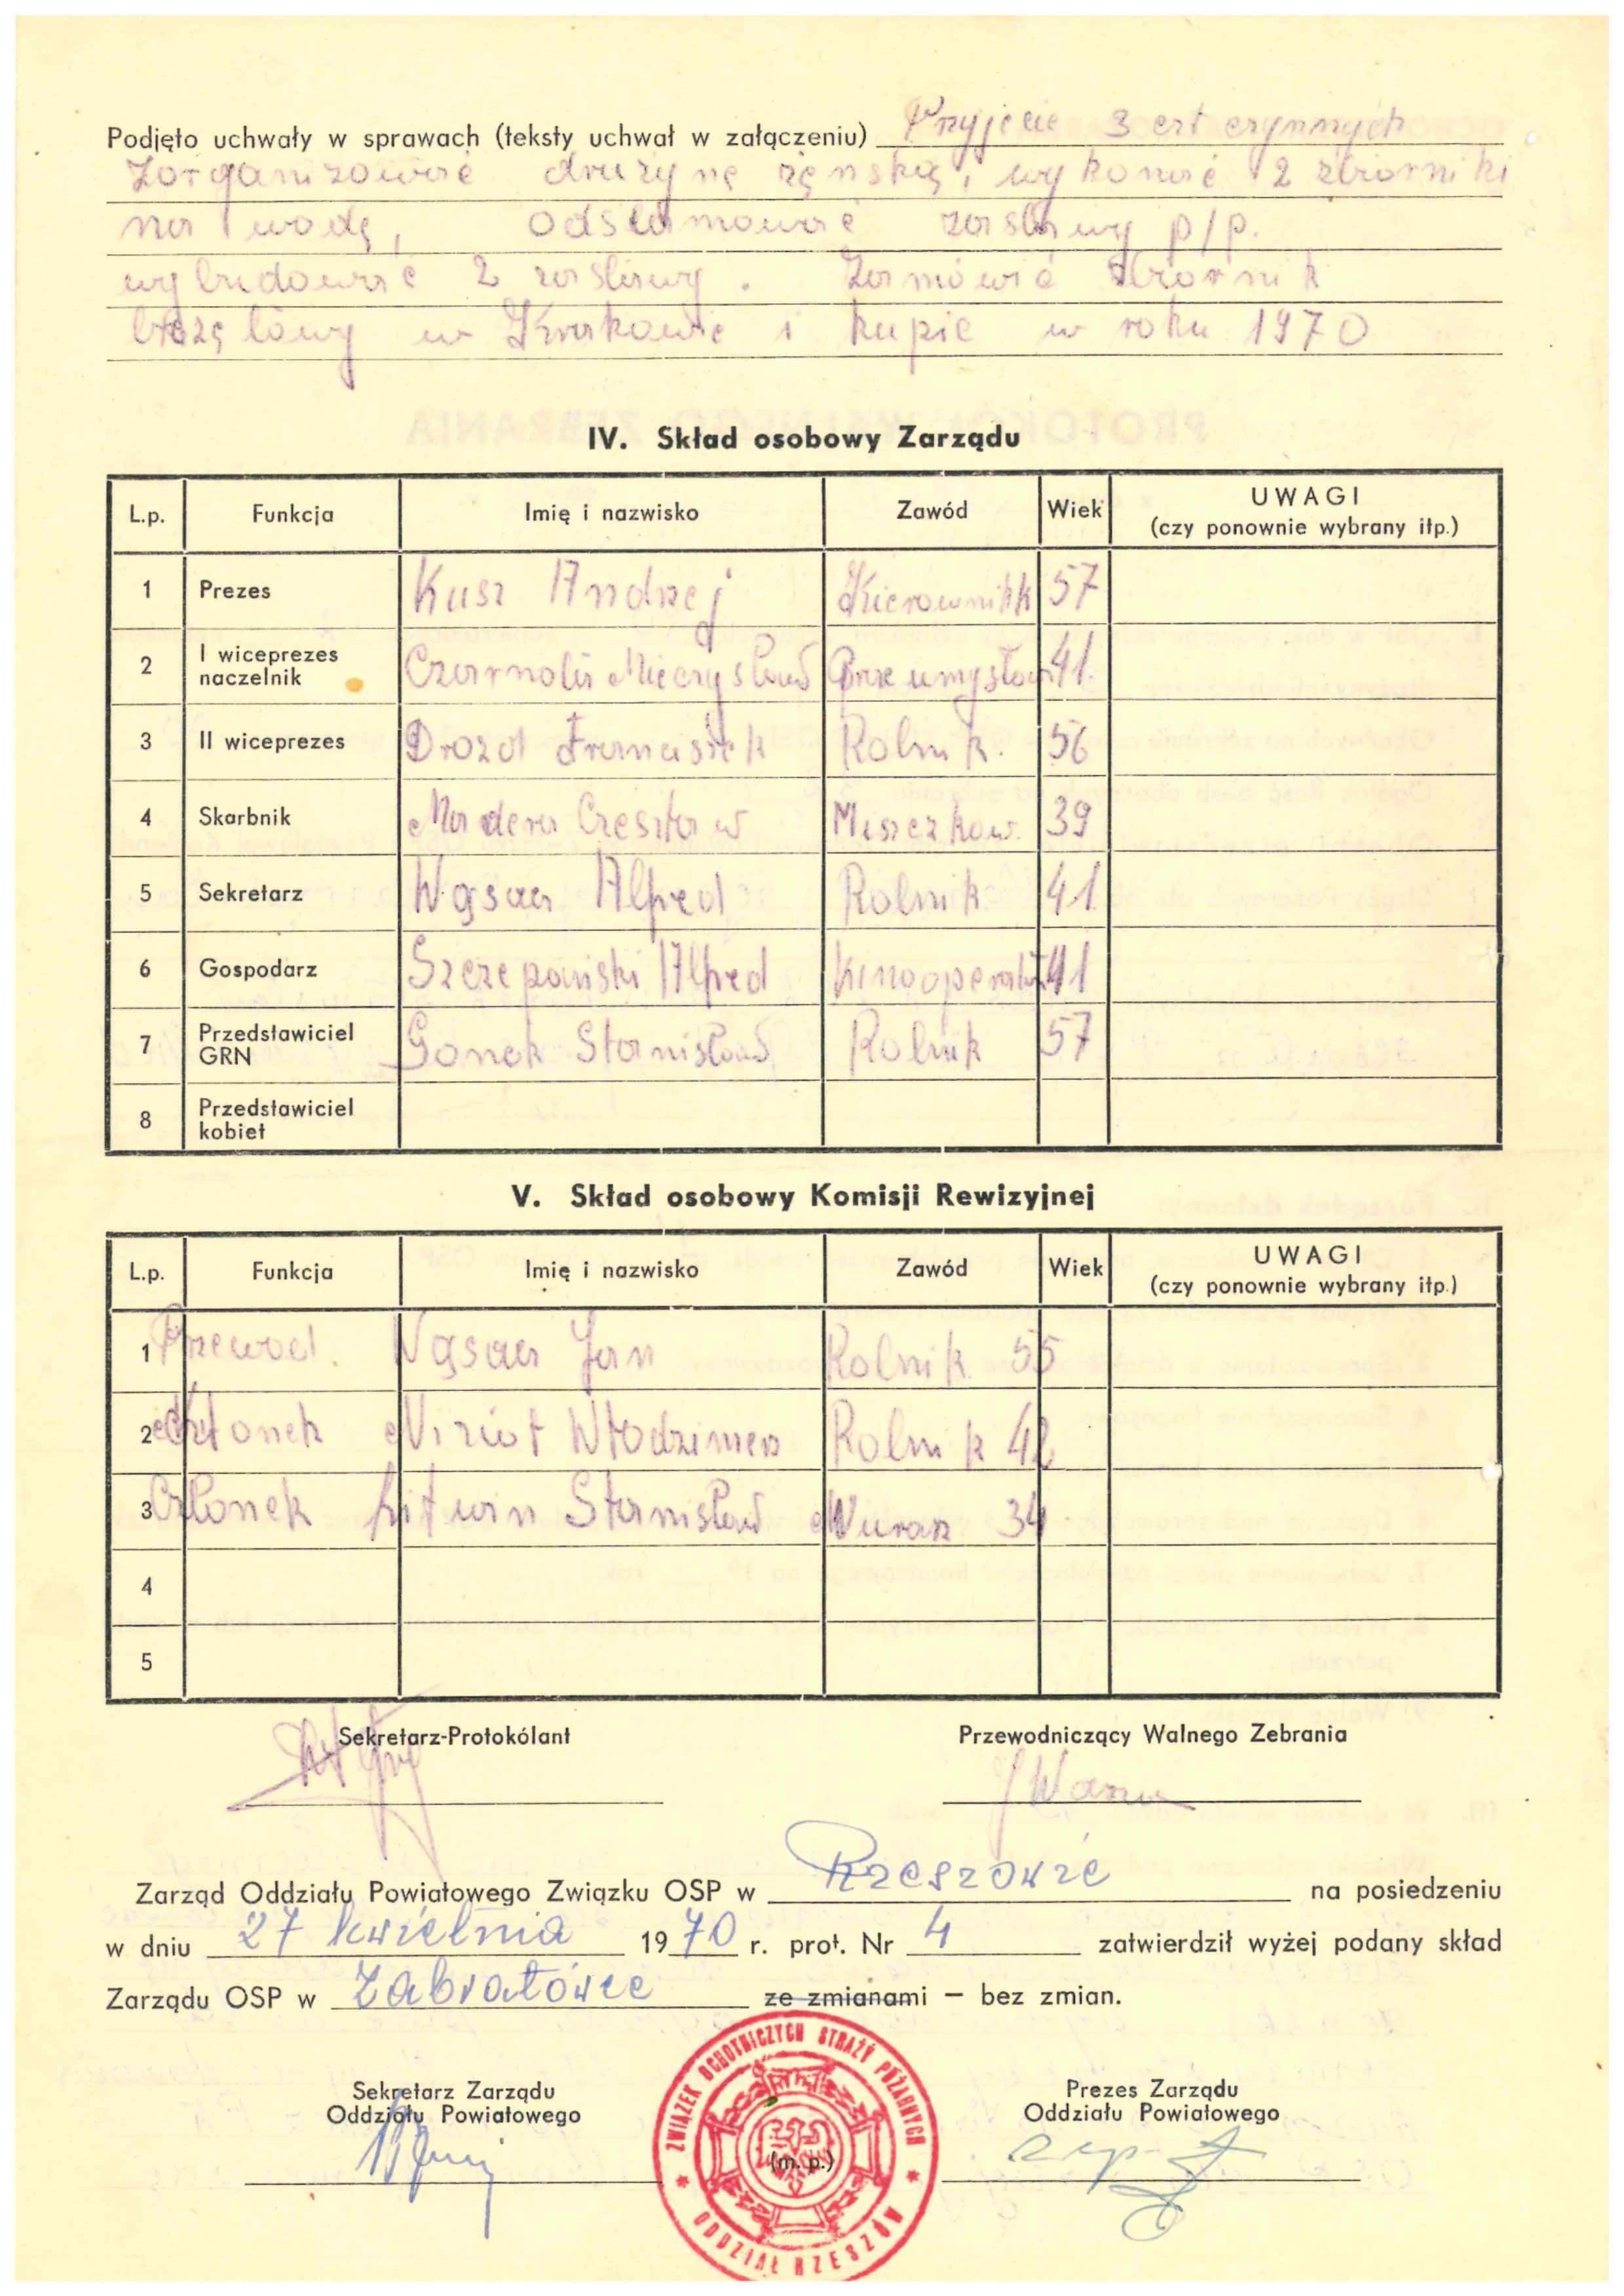 Podjęto uchwały w sprawach (teksty uchwał w załączeniu) Przyjęcie 3 czł czynnych
Zorganizować drużynę żęńską, wykonać 2 zbiorniki
na wodę, odszlamować zastawy p/p.
wybudować 2 zastawy. Zamówić zbiornik
w Krakowie i kupić w roku 1970
IV. Skład osobowy Zarządu
L.p. Funkcja Imię i nazwisko Zawód Wiek UWAGI (czy ponownie wybrany itp.)
1 Prezes Kusz Andrzej Kierownik 57
2 I wiceprezes naczelnik Czarnota Mieczysław Prac umysłow 41.
3 II wiceprezes Drozd Franciszek Rolnik. 56
4 Skarbnik Madera Czesław 39
5 Sekretarz Wąsacz Alfred Rolnik 41
6 Gospodarz Szczepański Alfred Kinooperator 41
7 Przedstawiciel GRN Gonek Stanisław Rolnik 57
8 Przedstawiciel kobiet
V. Skład osobowy Komisji Rewizyjnej
L.p. Funkcja Imię i nazwisko Zawód Wiek UWAGI (czy ponownie wybrany itp.)
1 Przewod. Wąsacz Jan Rolnik 55
2 Członek Nizioł Włodzimierz Rolnik 42
3 Członek Litwin Stanisław Murarz 34
4
5
Sekretarz-Protokólant Przewodniczący Walnego Zebrania
Zarząd Oddziału Powiatowego Związku OSP w Rzeszowie na posiedzeniu
w dniu 27 kwietnia 1970 r. prot. Nr 4 zatwierdził wyżej podany skład
Zarządu OSP w Zabratówce ze zmianami – bez zmian.
Sekretarz Zarządu Oddziału Powiatowego
Prezes Zarządu Oddziału Powiatowego
ZWIĄZEK OCHOTNICZYCH STRAŻY POŻARNYCH
(m. p.)
ODDZIAŁ RZESZÓW